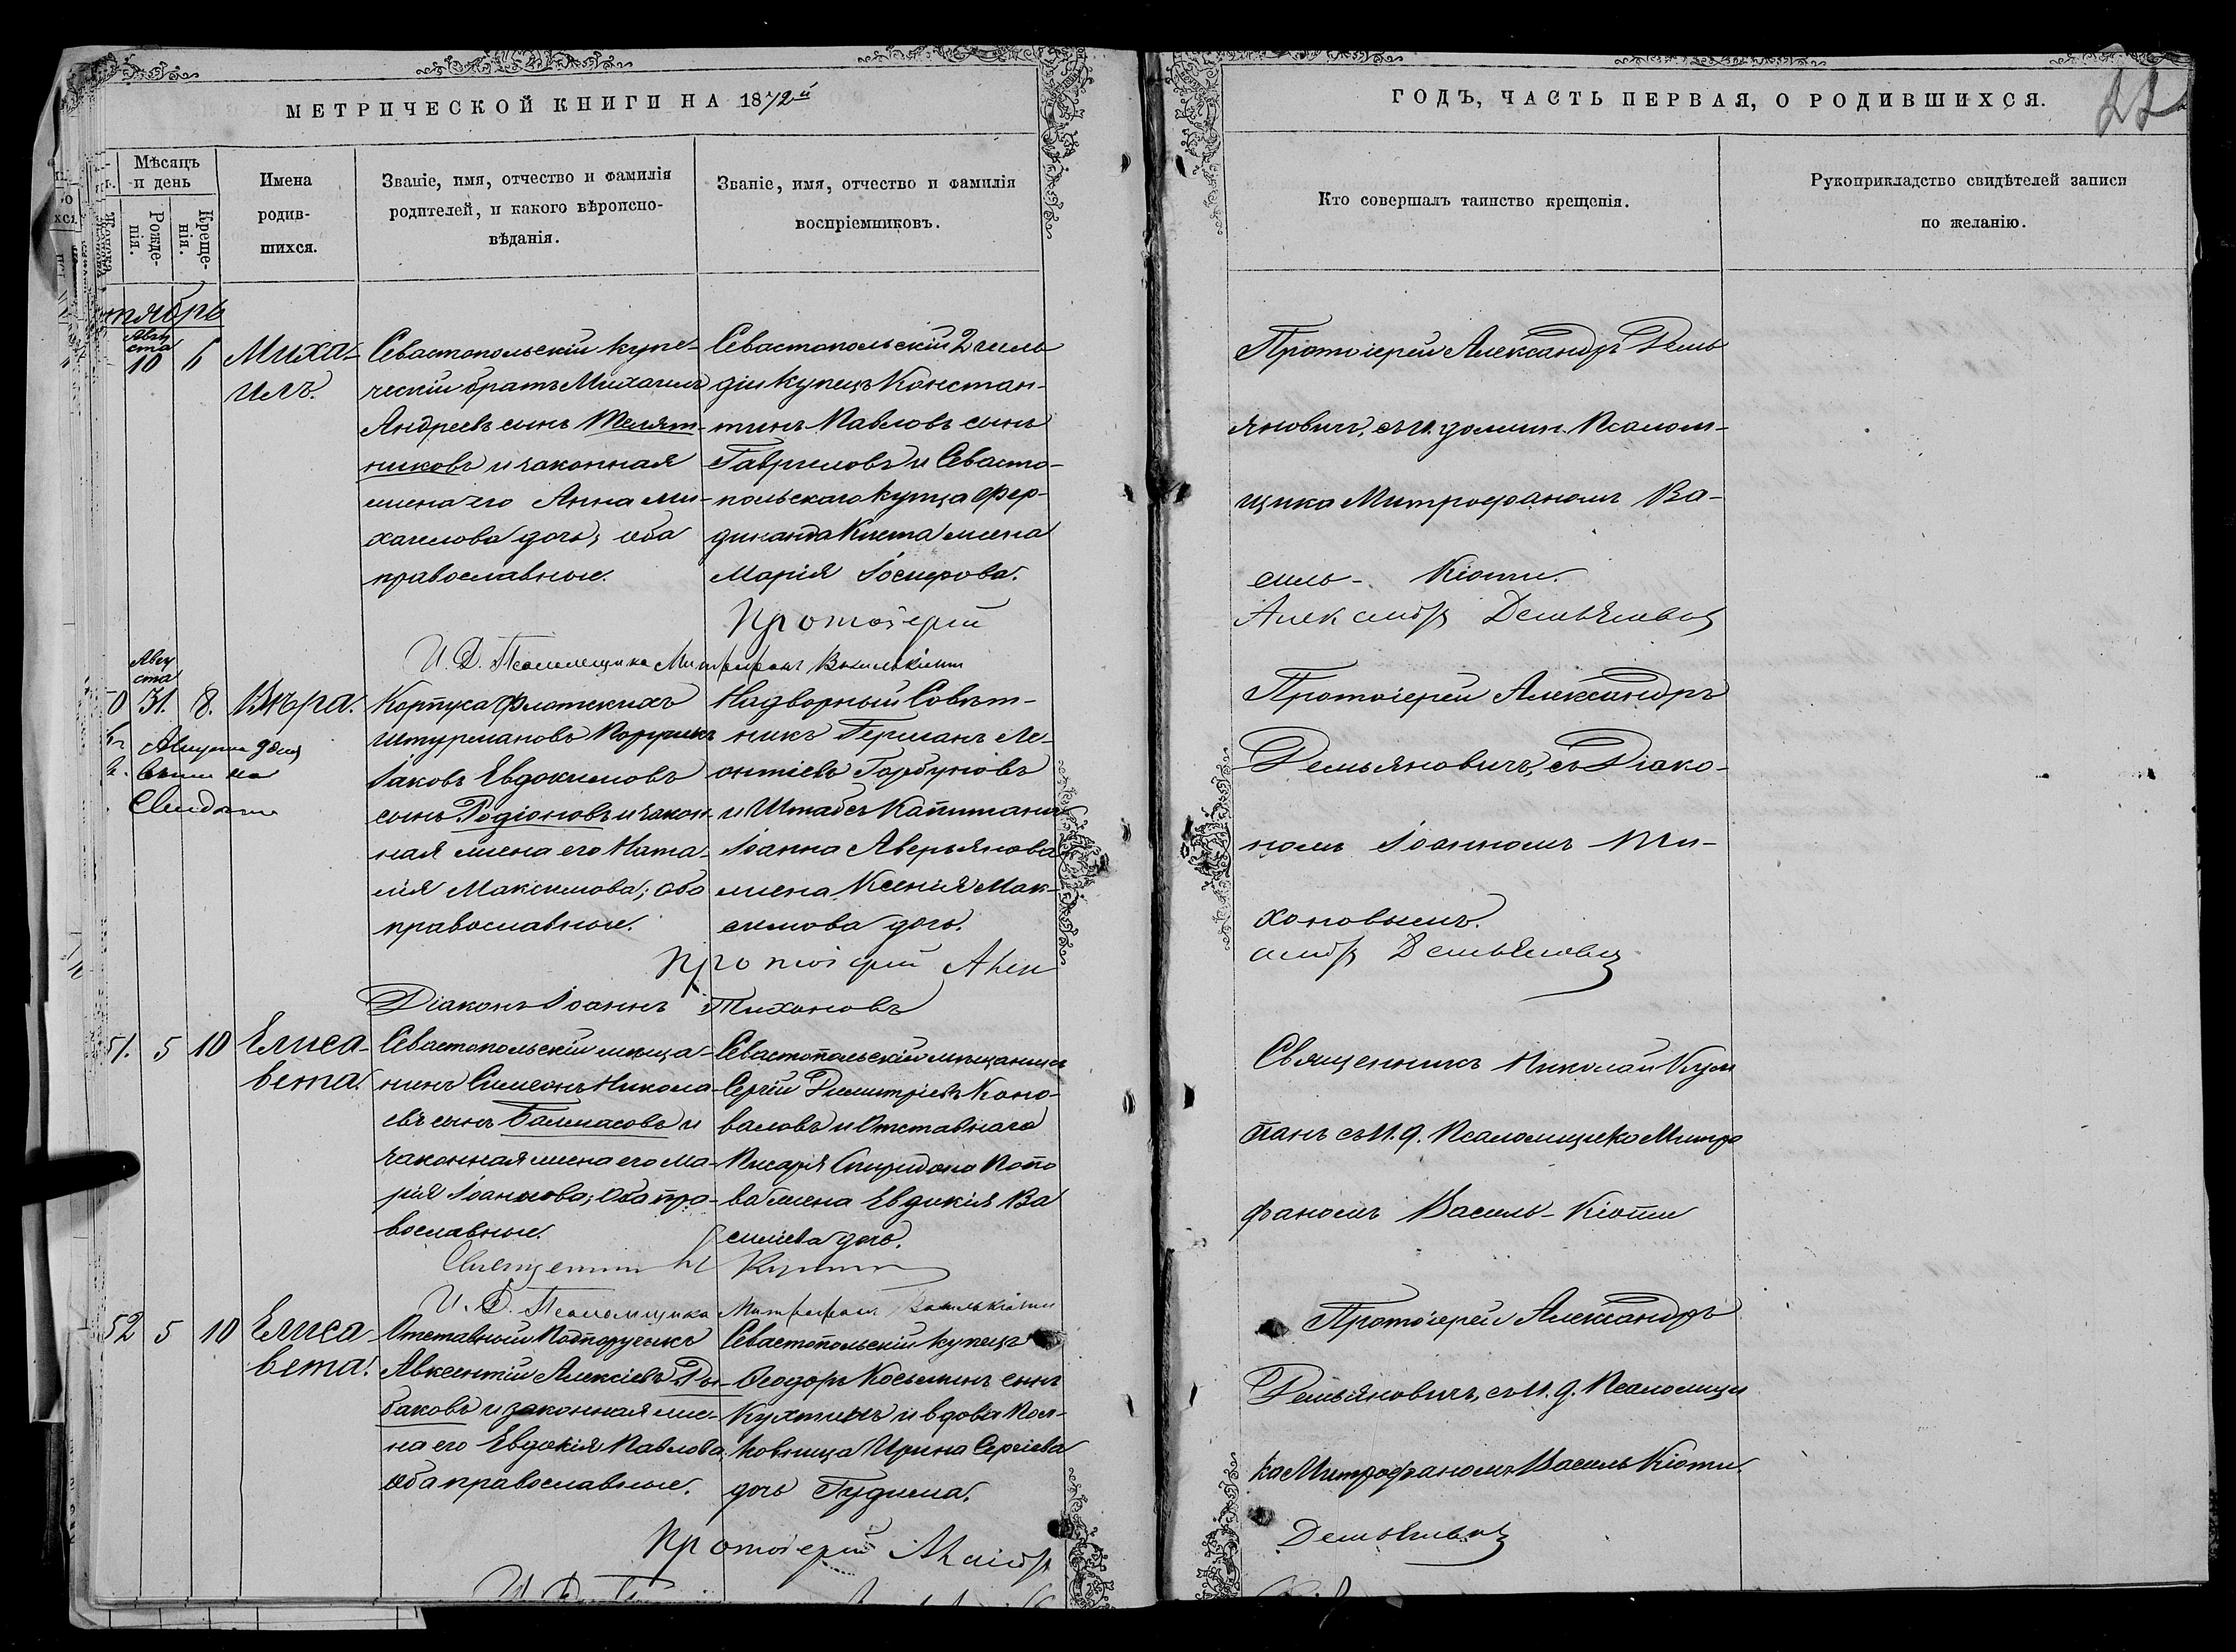 МЕТРИЧЕСКОЙ КНИГИ НА 1872й
ГОДЪ, ЧАСТЬ ПЕРВАЯ, О РОДИВШИХСЯ.
Мѣсяцъ
и день
Рожде-
нія.
Креще-
нія.
Имена
родив-
шихся.
Званіе, имя, отчество и фамилія
родителей, и какого вѣроиспо-
вѣданія.
Званіе, имя, отчество и фамилія
воспріемниковъ.
Кто совершалъ таинство крещенія.
Рукоприкладство свидѣтелей записи
по желанію.
тябрь
Авгу
ста
10 6
Миха-
илъ.
Севастопольскій купе-
ческій братъ Михаилъ
Андреевъ сынъ Телят-
никовъ и законная
жена его Анна Ми-
хаилова дочь; оба
православные.
Севастопольскій 2 гиль
діи купецъ Констан-
тинъ Павловъ сынъ
Гавриловъ и Севасто-
польскаго купца Фер-
динанда Киста жена
Марія Іосифова.
Протоіерей Александръ Демь
яновичъ, съ и. должн. Псалом-
щика Митрофаномъ Ва-
силь- Кіоти.
Протоіерей
Александръ Демьяновичъ
И. Д. Псаломщика Митрофанъ Василькіоти
Авгу
ста
0 31. 8.
Вѣра.
Корпуса флотскихъ
Штурмановъ Поручикъ
Іаковъ Евдокимовъ
сынъ Родіоновъ и закон-
ная жена его Ната-
лія Максимова; оба
православные.
Надворный Совѣт-
никъ Германъ Ле-
онтіевъ Горбуновъ
и Штабсъ Капитана
Іоанна Аверьянова
жена Ксенія Мак-
симова дочь.
Протоіерей Александръ
Демьяновичъ, съ Діако-
номъ Іоанномъ Ти-
хоновымъ.
Протоіерей Алек
сандръ Демьяновичъ
Діаконъ Іоаннъ Тихоновъ
51. 5 10
Елиса-
вета.
Севастопольскій мѣща-
нинъ Симеонъ Никола-
евъ сынъ Балмасовъ и
законная жена его Ма-
рія Іоаннова; оба пра-
вославные.
Севастопольскій мѣщанинъ
Сергій Димитріевъ Коно-
валовъ и Отставнаго
Писаря Спиридона Попо
ва жена Евдокія Ва
силіева дочь.
Священникъ Николай
панъ съ И. д. Псаломщика Митро
фаномъ Василь-Кіоти
Священникъ Н
И. Д. Псаломщика Митрофанъ Василькіоти
52 5 10
Елиса-
вета.
Отставной Подпоручикъ
Авксентій Алексіевъ Ры-
баковъ и законная же-
на его Евдокія Павлова,
оба православные.
Севастопольскій купецъ
Ѳеодоръ Косьминъ сынъ
Кухтинъ и вдова Пол-
ковница Ирина Сергіева
дочь Гудима.
Протоіерей Александръ
Демьяновичъ, съ И. д. Псаломщи
ка Митрофаномъ Василь Кіоти.
Протоіерей Александръ
Демьяновичъ